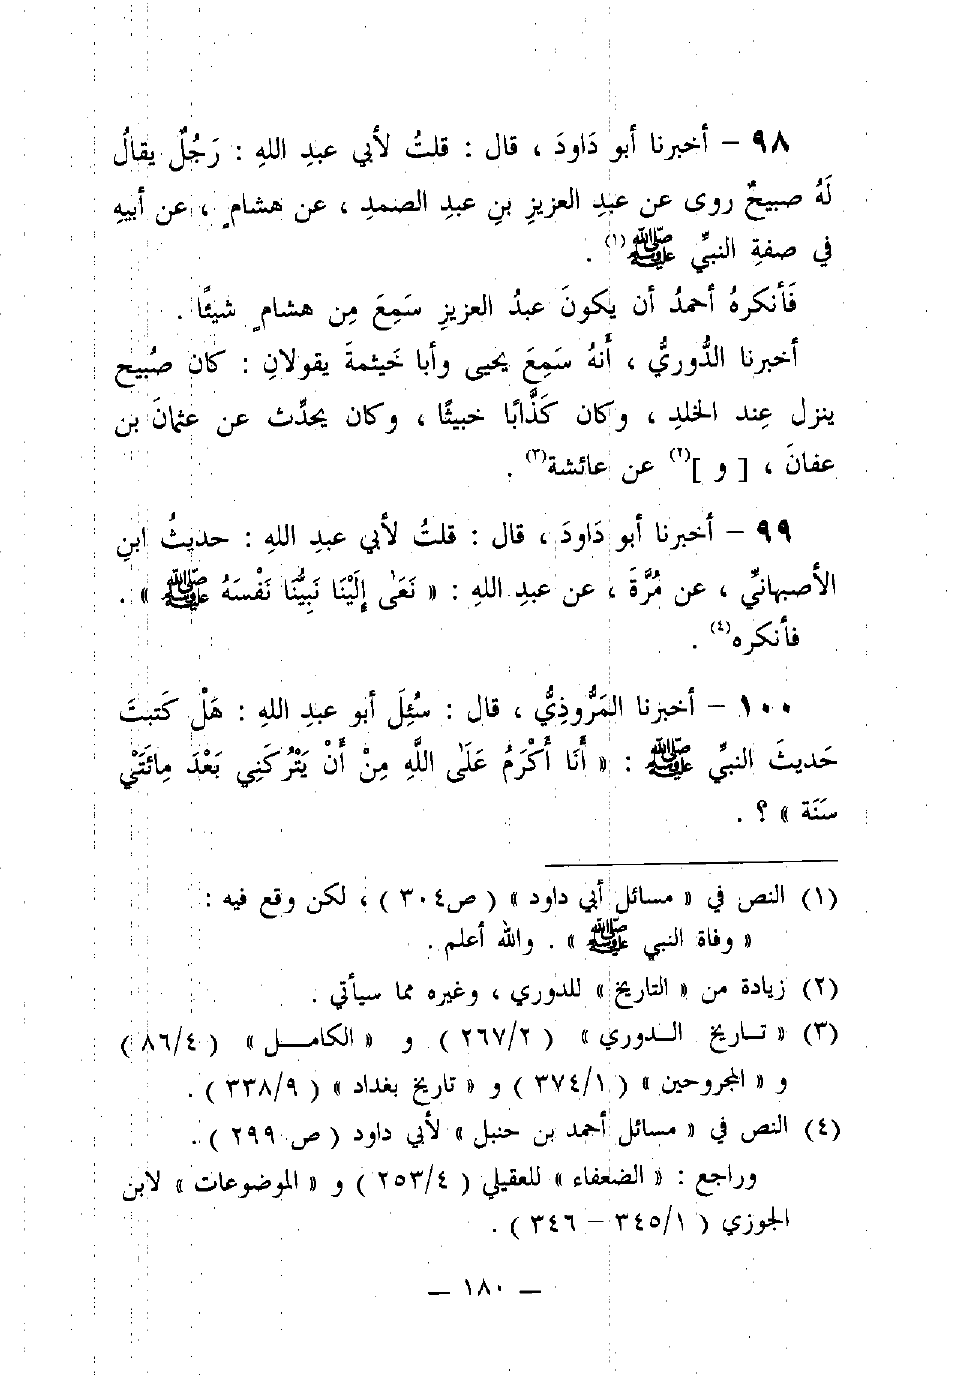 ٩٨ – أخبرنا أبو دَاودَ ، قال : قلتُ لأبي عبدِ اللهِ : رَجُلٌ يقالُ
لَهُ صبيحٌ روى عن عبدِ العزيزِ بنِ عبدِ الصمدِ ، عن هشامٍ ، عن أبيهِ
في صفةِ النبيِّ ﷺ(١) .
فَأنكرهُ أحمدُ أن يكونَ عبدُ العزيزِ سَمِعَ مِن هشامٍ شيئًا .
أخبرنا الدُّوريُّ ، أَنهُ سَمِعَ يحيى وأبا خَيثمةَ يقولانِ : كان صُبيح
ينزل عِند الخلدِ ، وكان كَذَّابًا خبيثًا ، وكان يحدِّث عن عثمانَ بن
عفانَ ، [ و ](٢) عن عائشة(٣) .
٩٩ – أخبرنا أبو دَاودَ ، قال : قلتُ لأبي عبدِ اللهِ : حديثُ ابنِ
الأصبهانيِّ ، عن مُرَّةَ ، عن عبدِ اللهِ : « نَعَىٰ إِلَيْنَا نَبِيُّنَا نَفْسَهُ ﷺ » .
فأنكره(٤) .
١٠٠ – أخبرنا المَرُّوذِيُّ ، قال : سُئِلَ أبو عبدِ اللهِ : هَلْ كَتبتَ
حَديثَ النبيِّ ﷺ : « أَنَا أَكْرَمُ عَلَى اللَّهِ مِنْ أَنْ يَتْرُكَنِي بَعْدَ مِائَتَيْ
سَنَة » ؟ .
(١) النص في « مسائل أبي داود » ( ص٣٠٤ ) ، لكن وقع فيه :
« وفاة النبي ﷺ » . والله أعلم .
(٢) زيادة من « التاريخ » للدوري ، وغيره مما سيأتي .
(٣) « تــاريخ الــدوري » ( ٢٦٧/٢ ) و « الكامــــل » ( ٨٦/٤ )
و « المجروحين » ( ٣٧٤/١ ) و « تاريخ بغداد » ( ٣٣٨/٩ ) .
(٤) النص في « مسائل أحمد بن حنبل » لأبي داود ( ص ٢٩٩ ) .
وراجع : « الضعفاء » للعقيلي ( ٢٥٣/٤ ) و « الموضوعات » لابن
الجوزي ( ٣٤٥/١ – ٣٤٦ ) .
— ١٨٠ —